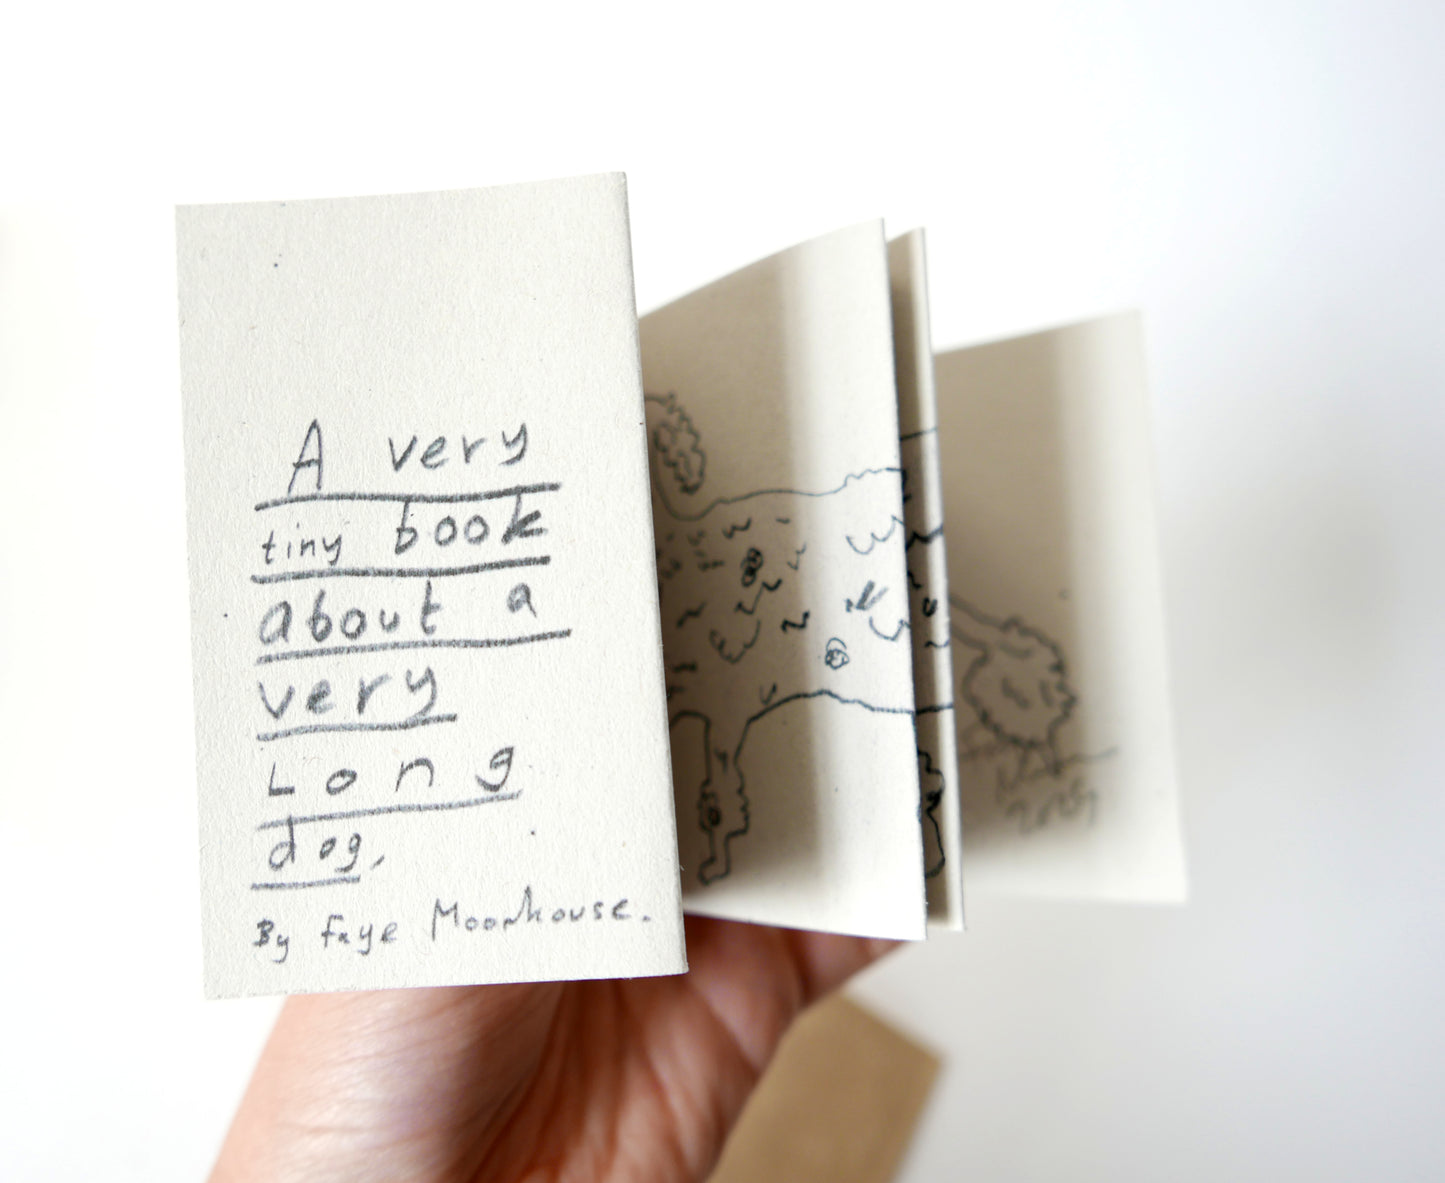 A very
tiny book
about a
very
Long
dog.
By Faye Moorhouse.